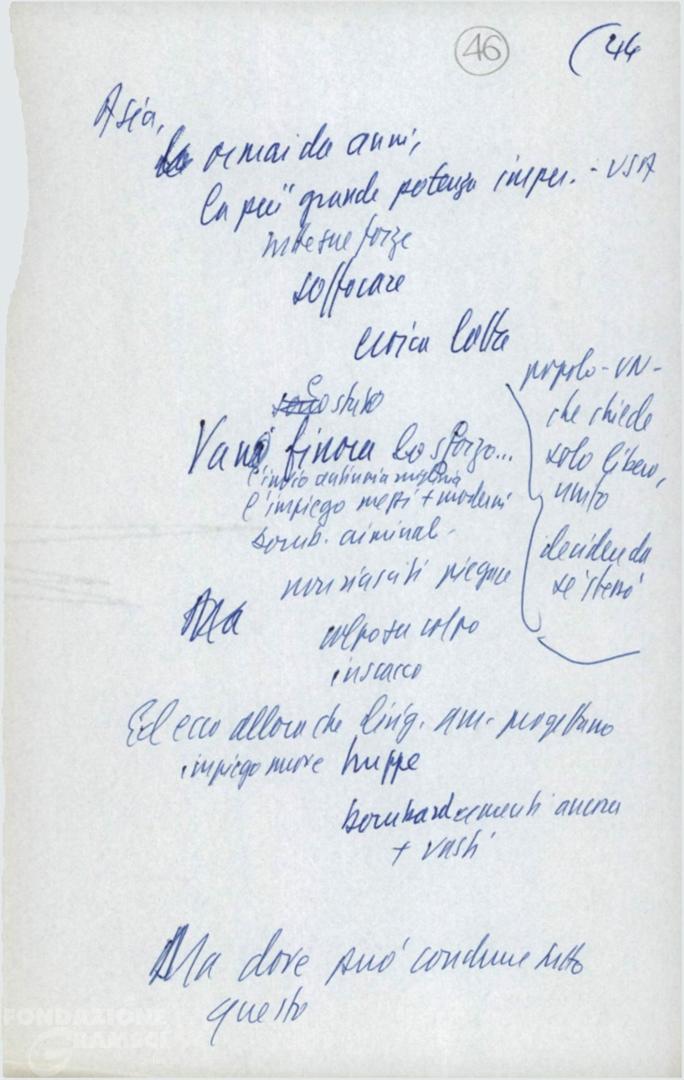 46
(44
Asia,
ormai da anni,
la più grande potenza imper. - USA
sue forze
soffocare
eroica lotta
popolo - VN -
che chiede
solo libero,
unito
decidere da
sé stesso
È stato
Vano finora lo sforzo...
l'invio
l'impiego mezzi + moderni
bomb. criminal -
non riusciti piegare
Ma
colpo su colpo
in scacco
Ed ecco allora che dirig. am. progettano
impiego nuove truppe
bombardamenti ancora
+ vasti
Ma dove può condurre tutto
questo
FONDAZIONE
GRAMSCI